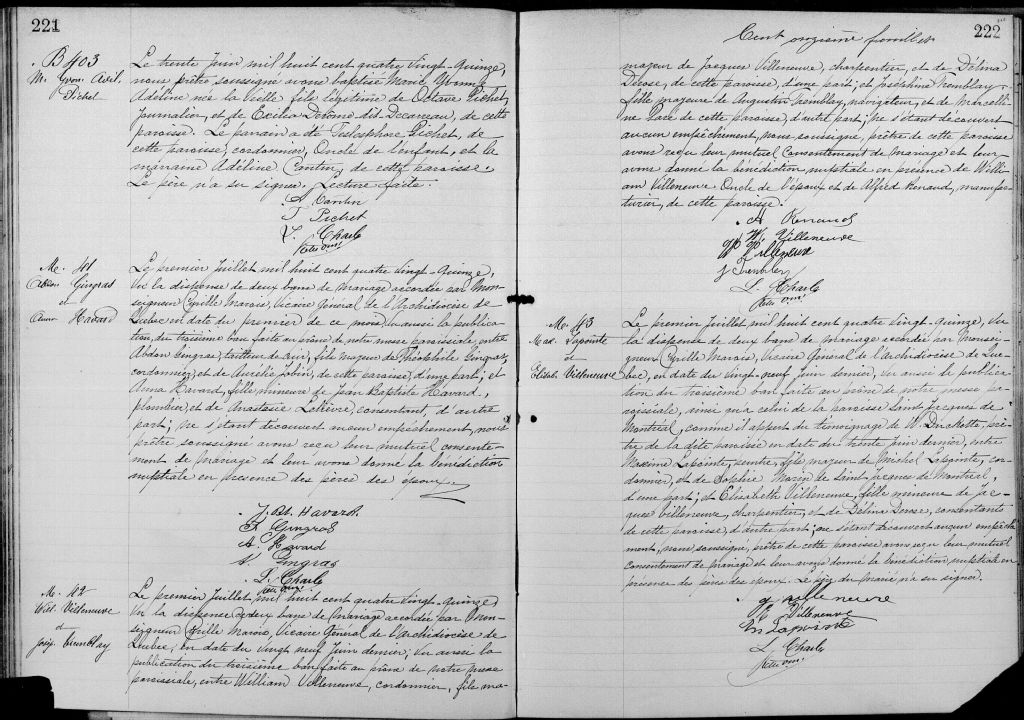 221
B 403
M. Yvon. Adél.
Pichet
Le trente Juin mil huit cent quatre vingt-quinze,
nous prêtre soussigné avons baptisé Marie Yvonne
Adéline née la veille fille légitime de Octave Pichet,
journalier, et de Exilia Delome dit Decareau, de cette
paroisse. Le parrain a été Télesphore Pichet, de
cette paroisse, cordonnier, Oncle de l'enfant, et la
marraine Adéline Cantin, de cette paroisse.
Le père n'a su signer. Lecture faite.
A Cantin
T Pichet
F. Charle
M. 41
Abdon Gingras
et
Anna Havard
Le premier Juillet mil huit cent quatre vingt-quinze,
Vu la dispense de deux bans de mariage accordée par Mon-
seigneur Cyrille Marois, Vicaire Général de l'Archidiocèse de
Quebec en date du premier de ce mois, vu aussi la publica-
tion du troisième ban faite au prône de notre messe paroissiale, entre
Abdon Gingras, tailleur de cuir, fils majeur de Théophile Gingras,
cordonnier, et de Aurélie Jobin, de cette paroisse, d'une part; et
Anna Havard, fille mineure de Jean Baptiste Havard,
plombier, et de Anastasie Lelièvre, consentant, d'autre
part; Ne s'étant découvert aucun empêchement, nous
prêtre soussigné avons reçu leur mutuel consente-
ment de mariage et leur avons donné la bénédiction
nuptiale en présence des pères des époux.
J. Bt. Havard
T. Gingras
A. Havard
A. Gingras
F. Charle
M. 42
Will Villeneuve
et
Josép. Tremblay
Le premier Juillet mil huit cent quatre vingt-quinze,
Vu la dispense de deux bans de mariage accordée par Mon-
seigneur Cyrille Marois, Vicaire Général de l'Archidiocèse de
Quebec, en date du vingt neuf Juin dernier; Vu aussi la
publication du troisième ban faite au prône de notre messe
paroissiale, entre William Villeneuve, cordonnier, fils ma-
222
Cent onzième feuillet
majeur de Jacques Villeneuve, charpentier, et de Délina
Derose, de cette paroisse, d'une part; et Joséphine Tremblay,
fille majeure de Augustin Tremblay, navigateur, et de Marcelli-
ne Lare de cette paroisse, d'autre part; Ne s'étant découvert
aucun empêchement, nous soussigné, prêtre de cette paroisse
avons reçu leur mutuel Consentement de mariage et leur
avons donné la bénédiction nuptiale en présence de Willi-
am Villeneuve Oncle de l'époux et de Alfred Renaud, manufac-
turier, de cette paroisse.
A Renaud
W. Villeneuve
W Villeneuve
J Tremblay
F. Charle
M. 43
Max. Lapointe
et
Elisab. Villeneuve
Le premier Juillet mil huit cent quatre vingt-quinze, Vu
la dispense de deux bans de mariage accordée par Monsei-
gneur Cyrille Marois, Vicaire Général de l'Archidiocèse de Que-
bec, en date du vingt-neuf juin dernier, Vu aussi la publica-
tion du troisième ban faite au prône de notre messe pa-
roissiale, ainsi qu'à celui de la paroisse Saint Jacques de
Montréal, comme il appert du témoignage de W. Duckett, prê-
tre de la dite paroisse en date du trente juin dernier, entre
Maxime Lapointe, peintre, fils majeur de Michel Lapointe, cor-
donnier, et de Sophie Morin de Saint Jacques de Montréal,
d'une part; et Elisabeth Villeneuve, fille mineure de Jac-
ques Villeneuve, charpentier, et de Délina Derose, consentante
de cette paroisse, d'autre part; ne s'étant découvert aucun empêche-
ment, nous, soussigné, prêtre de cette paroisse avons reçu leur mutuel
Consentement de mariage et leur avons donné la bénédiction nuptiale en
présence des pères des époux. Le père du marié n'a su signer.
J Villeneuve
E Villeneuve
M Lapointe
F. Charle